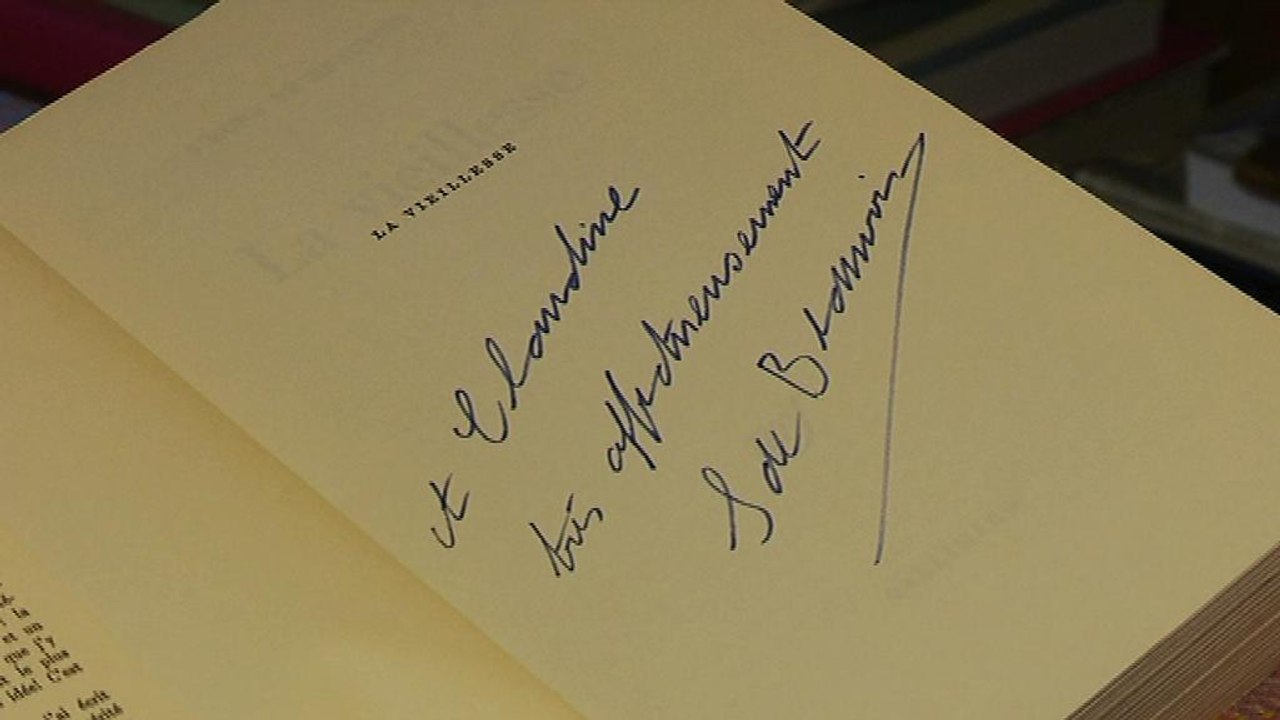 LA VIEILLESSE
à Claudine
très affectueusement
S de Beauvoir
la
et un
que j'y
le plus
idée! C'est
j'ai écrit